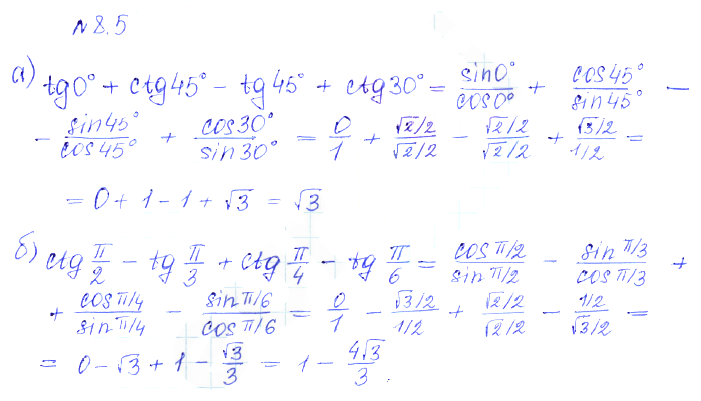 №8.5
а) tg0° + ctg45° - tg45° + ctg30° = sin0°/cos0° + cos45°/sin45° -
- sin45°/cos45° + cos30°/sin30° = 0/1 + (√2/2)/(√2/2) - (√2/2)/(√2/2) + (√3/2)/(1/2) =
= 0 + 1 - 1 + √3 = √3
б) ctg π/2 - tg π/3 + ctg π/4 - tg π/6 = (cos π/2)/(sin π/2) - (sin π/3)/(cos π/3) +
+ (cos π/4)/(sin π/4) - (sin π/6)/(cos π/6) = 0/1 - (√3/2)/(1/2) + (√2/2)/(√2/2) - (1/2)/(√3/2) =
= 0 - √3 + 1 - √3/3 = 1 - 4√3/3.